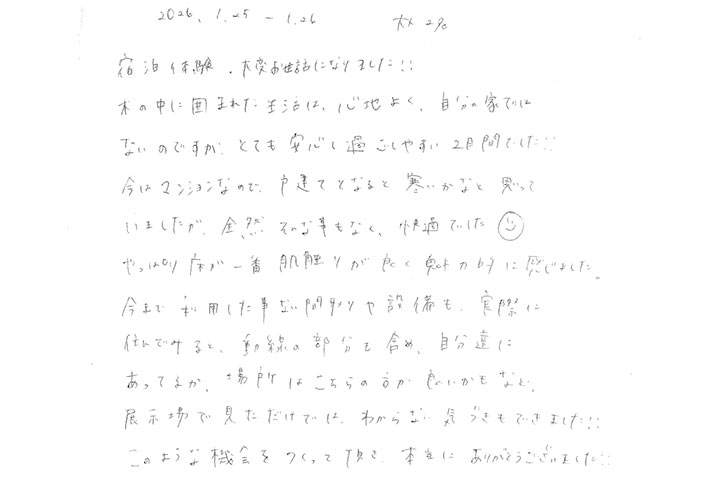 2026. 1.25 － 1.26
宿泊体験、大変お世話になりました!!
木の中に囲まれた生活は、心地よく、自分の家では
ないのですが、とても安心し過ごしやすい2日間でした!!
今はマンションなので、戸建てとなると寒いかなと思って
いましたが、全然そんな事もなく、快適でした
やっぱり床が一番肌触りが良く魅力的に感じました。
今まで利用した事ない間取りや設備も、実際に
住んでみると、動線の部分も含め、自分達に
あってるか、場所はこちらの方が良いかもなど、
展示場で見ただけでは、わからない気づきもできました!!
このような機会をつくって頂き、本当にありがとうございました!!